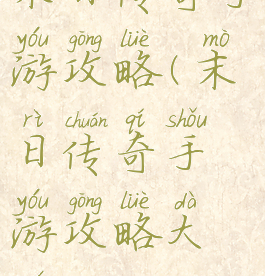 yóu gōng lüè mò
游攻略(末
rì chuán qí shǒu
日传奇手
yóu gōng lüè dà
游攻略大